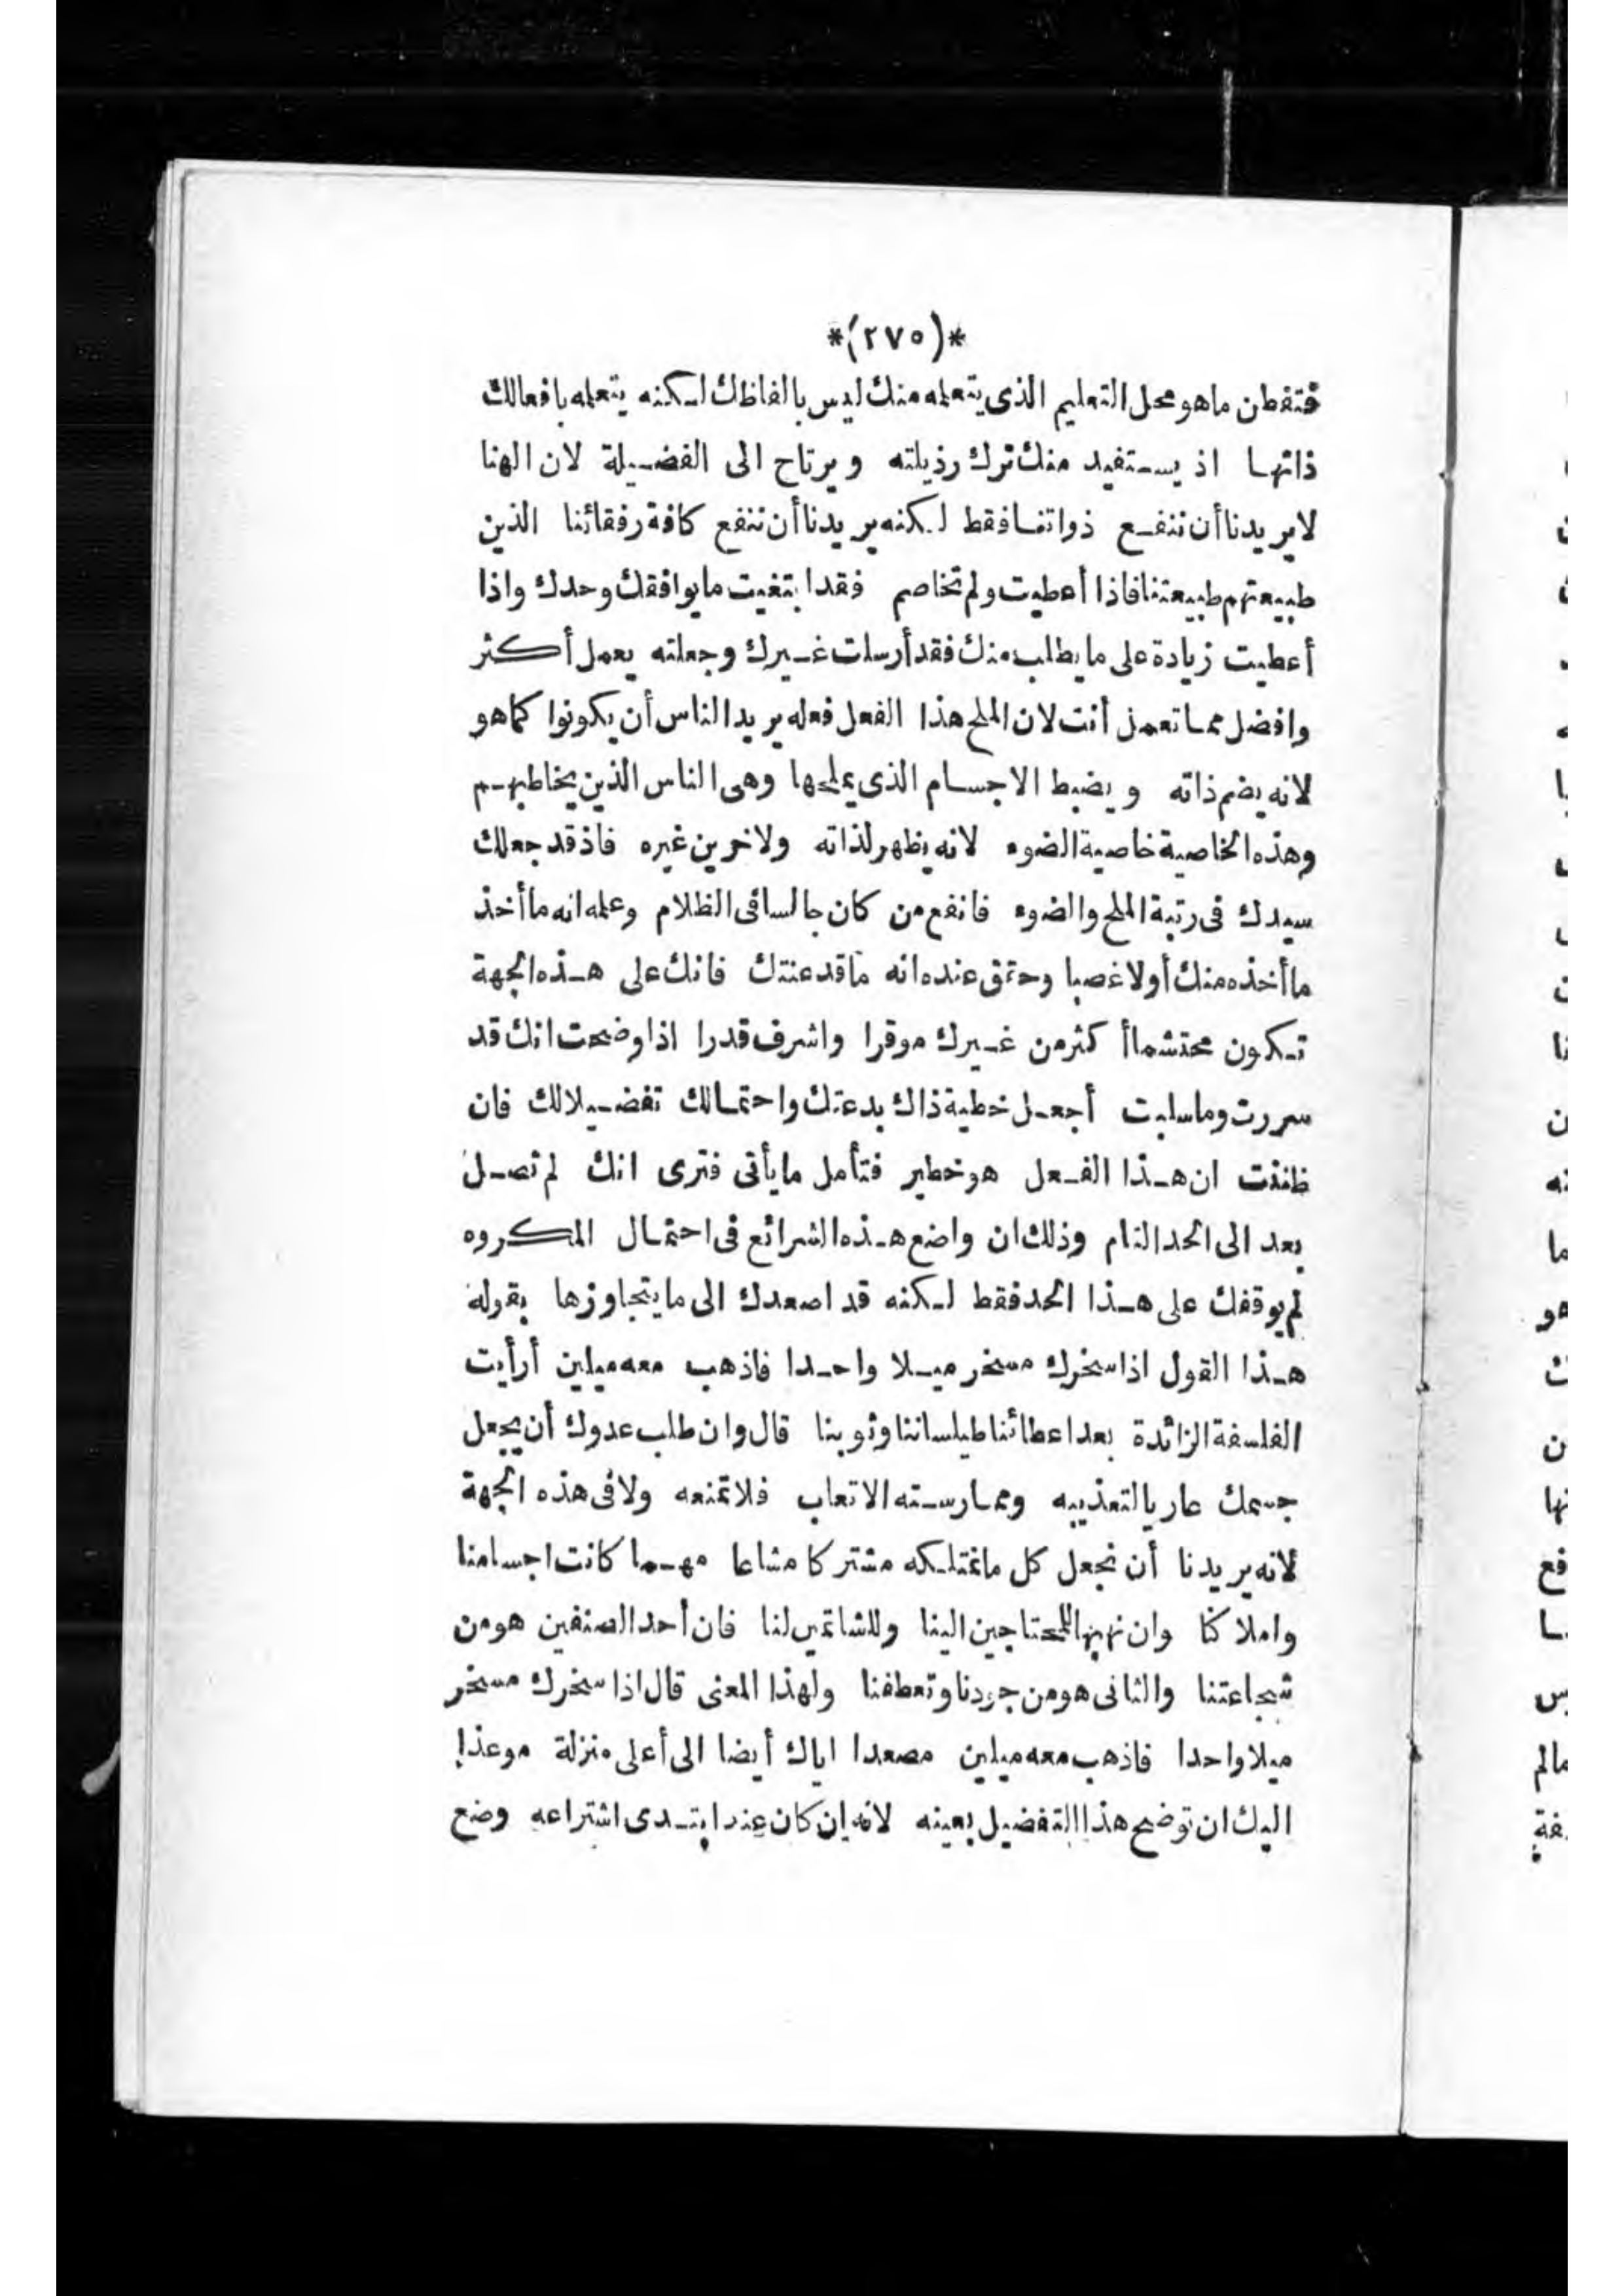 *(٢٧٥)*
فتفطن ما هو محل التعليم الذى يتعلمه منك ليس بالفاظك لكنه يتعلمه بافعالك
ذاتها اذ يستفيد منك ترك رذيلته ويرتاح الى الفضيلة لان الهنا
لا يريدنا أن ننفع ذواتنا فقط لكنه يريدنا أن ننفع كافة رفقائنا الذين
طبيعتهم طبيعتنا فاذا أعطيت ولم تخاصم فقد ابتغيت ما يوافقك وحدك واذا
أعطيت زيادة على ما يطلب منك فقد أرسلت غيرك وجعلته يعمل أكثر
وافضل مما تعمل أنت لان الملح هذا الفعل فعله يريد الناس أن يكونوا كما هو
لانه يضم ذاته ويضبط الاجسام الذى يملحها وهى الناس الذين يخاطبهم
وهذه الخاصية خاصية الضوء لانه يظهر لذاته ولاخرين غيره فاذ قد جعلك
سيدك فى رتبة الملح والضوء فانفع من كان جالسا فى الظلام وعلمه انه ما أخذ
ما أخذه منك أولا غصبا وحقق عنده انه ما قد عنتك فانك على هذه الجهة
تكون محتشما أكثر من غيرك موقرا واشرف قدرا اذا وضحت انك قد
سررت وما سلبت أجعل خطية ذاك بدعتك واحتمالك تفضيلا لك فان
ظننت ان هذا الفعل هو خطير فتأمل ما يأتى فترى انك لم تصل
بعد الى الحد التام وذلك ان واضع هذه الشرائع فى احتمال المكروه
لم يوقفك على هذا الحد فقط لكنه قد اصعدك الى ما يتجاوزها بقوله
هذا القول اذا سخرك مسخر ميلا واحدا فاذهب معه ميلين أرأيت
الفلسفة الزائدة بعد اعطائنا طيلساننا وثوبنا قال وان طلب عدوك أن يجعل
جسمك عاريا لتعذيبه وممارسته الاتعاب فلا تمنعه ولا فى هذه الجهة
لانه يريدنا أن نجعل كل ما نمتلكه مشتركا مشاعا مهما كانت اجسامنا
واملاكنا وان نهبها للمحتاجين الينا وللشاتمين لنا فان أحد الصنفين هو من
شجاعتنا والثانى هو من جودنا وتعطفنا ولهذا المعنى قال اذا سخرك مسخر
ميلا واحدا فاذهب معه ميلين مصعدا اياك أيضا الى أعلى منزلة موعذا
اليك ان توضح هذا التفضيل بعينه لانه ان كان عند ابتدى اشتراعه وضع